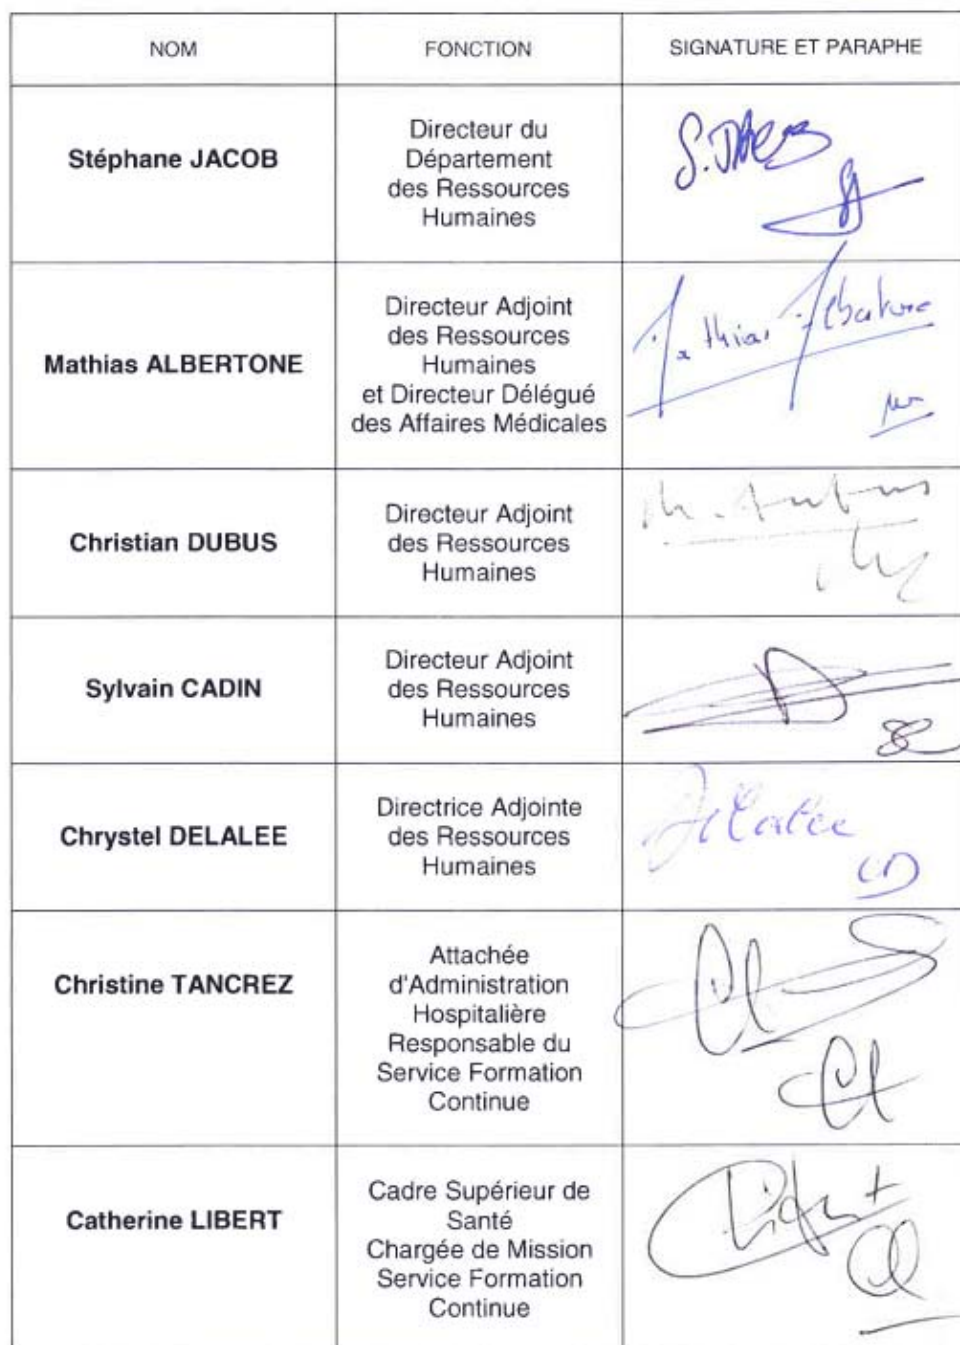 NOM
FONCTION
SIGNATURE ET PARAPHE
Stéphane JACOB
Directeur du
Département
des Ressources
Humaines
Mathias ALBERTONE
Directeur Adjoint
des Ressources
Humaines
et Directeur Délégué
des Affaires Médicales
Mathias Albertone
Christian DUBUS
Directeur Adjoint
des Ressources
Humaines
Sylvain CADIN
Directeur Adjoint
des Ressources
Humaines
Chrystel DELALEE
Directrice Adjointe
des Ressources
Humaines
Delalee
CD
Christine TANCREZ
Attachée
d'Administration
Hospitalière
Responsable du
Service Formation
Continue
Catherine LIBERT
Cadre Supérieur de
Santé
Chargée de Mission
Service Formation
Continue